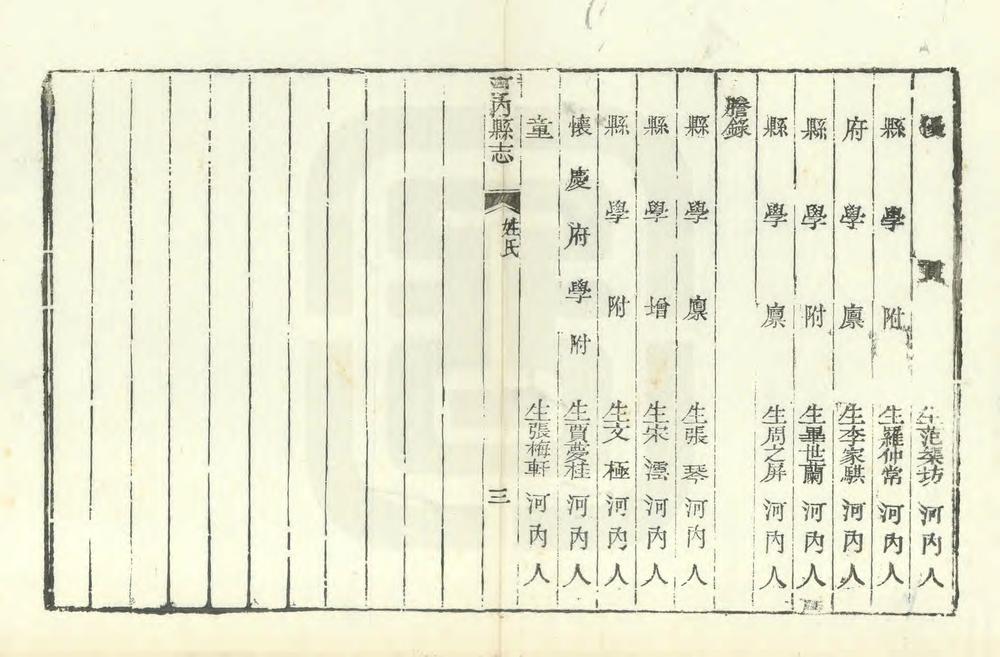 優貢生范榘坊河內人
縣學附生羅仲常河內人
府學廪生李家騏河內人
縣學附生畢世蘭河內人
縣學廪生周之屏河內人
謄錄
縣學廪生張琴河內人
縣學增生宋澐河內人
縣學附生文極河內人
懷慶府學附生賈夢桂河內人
童生張梅軒河內人
河內縣志
姓氏
三